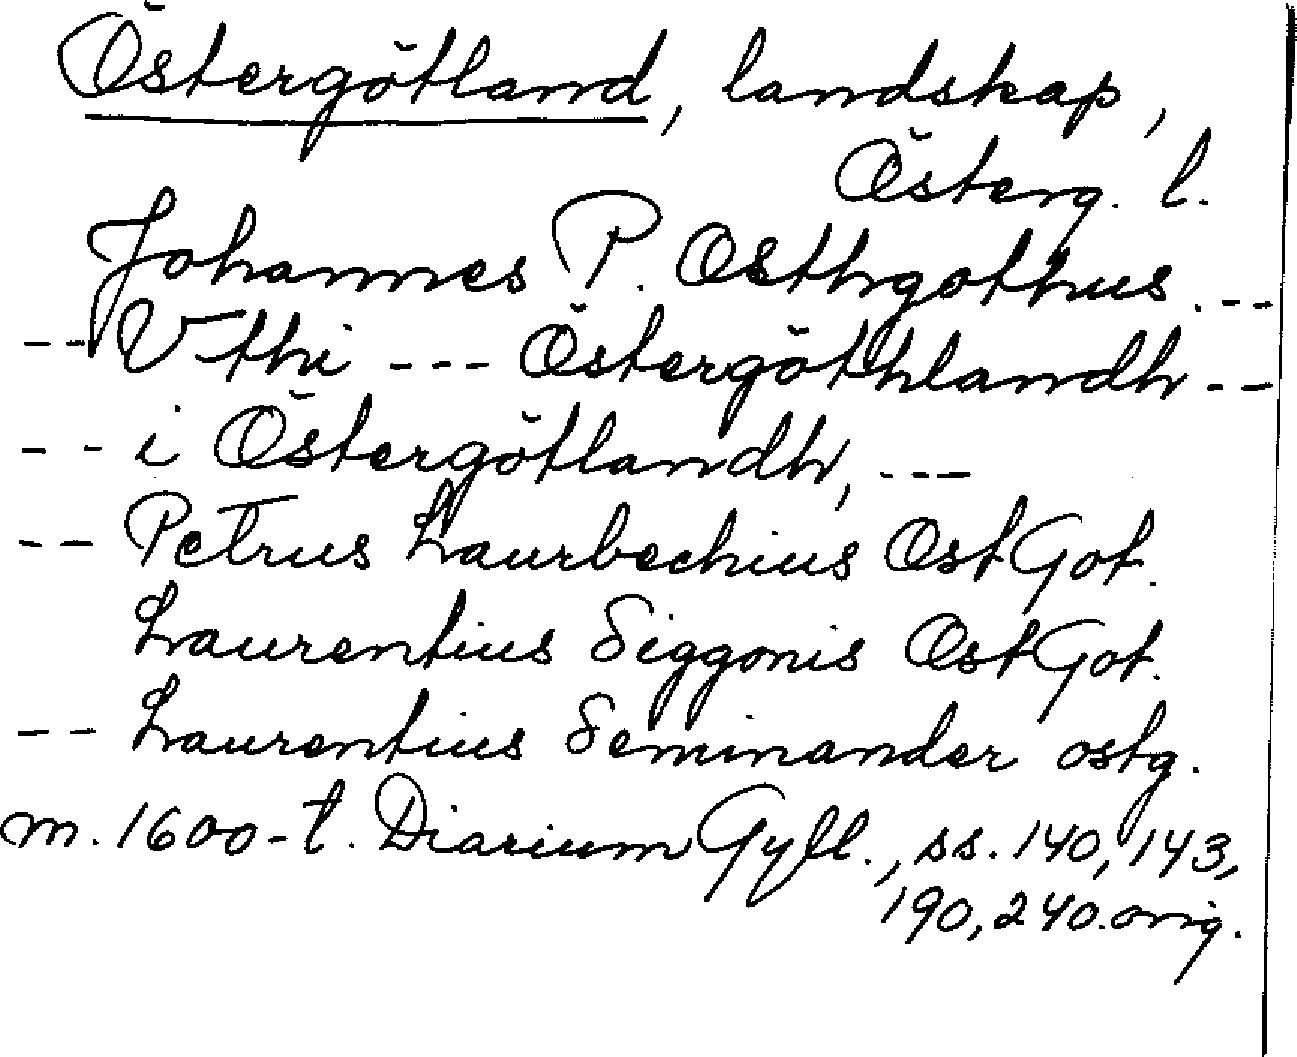 Östergötland, landskap,
Österg. l.
Johannes P. Osthgothus. --
-- Vthi --- Östergöthlandh --
-- i Östergötlandh, ---
-- Petrus Laurbechius Ost Got.
Laurentius Siggonis Ost Got.
-- Laurentius Seminander ostg.
m. 1600-t. Diarium Gyll., ss. 140, 143,
190, 240. orig.